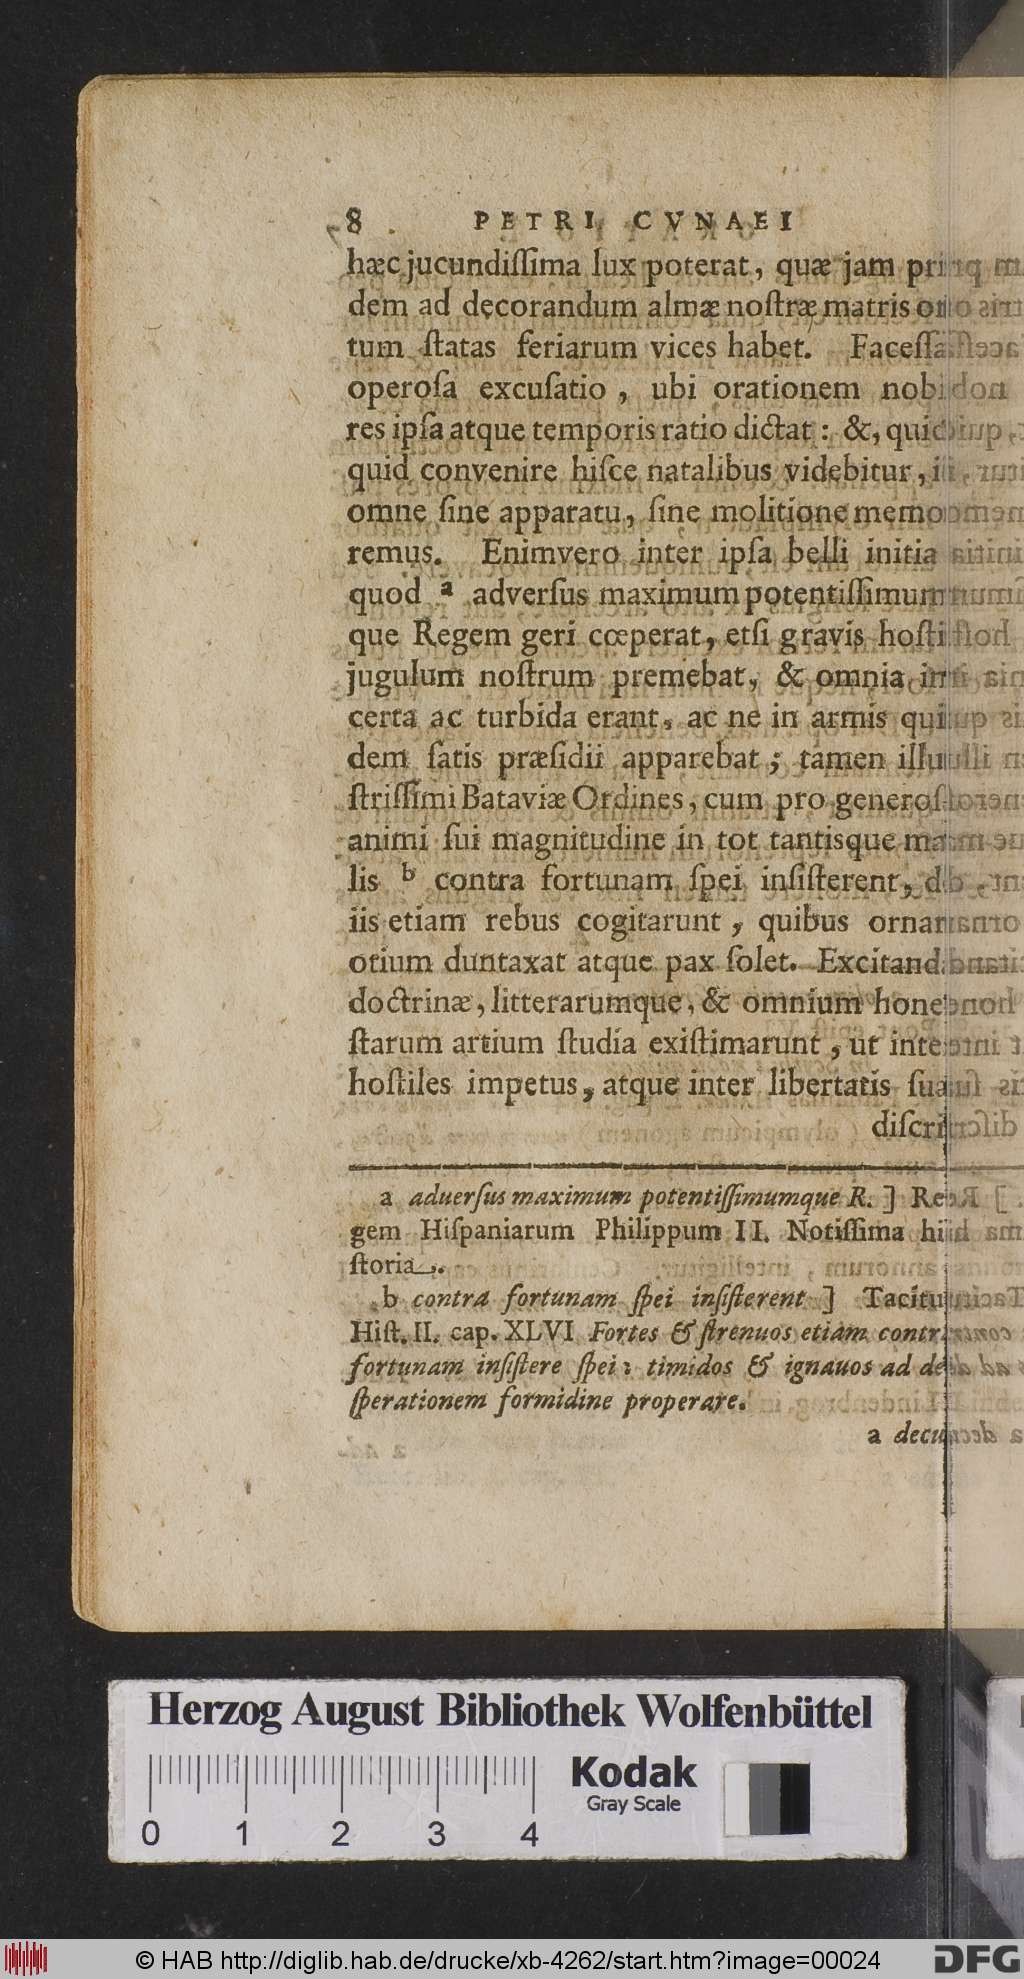 8 PETRI CVNAEI
hæc jucundiſſima lux poterat, quæ jam pri
dem ad decorandum almæ noſtræ matris or
tum ſtatas feriarum vices habet. Faceſſa
operoſa excuſatio, ubi orationem nobi
res ipſa atque temporis ratio dictat: &, quic
quid convenire hiſce natalibus videbitur, i
omne ſine apparatu, ſine molitione memo
remus. Enimvero inter ipſa belli initia
quod a adverſus maximum potentiſſimum
que Regem geri cœperat, etſi gravis hoſti
jugulum noſtrum premebat, & omnia in
certa ac turbida erant, ac ne in armis qui
dem ſatis præſidii apparebat; tamen illu
ſtriſſimi Bataviæ Ordines, cum pro generoſ
animi ſui magnitudine in tot tantisque ma
lis b contra fortunam ſpei inſiſterent, d
iis etiam rebus cogitarunt, quibus ornar
otium duntaxat atque pax ſolet. Excitand
doctrinæ, litterarumque, & omnium hone
ſtarum artium ſtudia exiſtimarunt, ut inte
hoſtiles impetus, atque inter libertatis ſua
diſcri
a aduerſus maximum potentiſſimumque R. ] Re
gem Hiſpaniarum Philippum II. Notiſſima hi
ſtoria.
b contra fortunam ſpei inſiſterent ] Tacitu
Hiſt. II. cap. XLVI Fortes & ſtrenuos etiam contr
fortunam inſiſtere ſpei: timidos & ignauos ad de
ſperationem formidine properare.
a decu
Herzog August Bibliothek Wolfenbüttel
Kodak
Gray Scale
0 1 2 3 4
© HAB http://diglib.hab.de/drucke/xb-4262/start.htm?image=00024
DFG